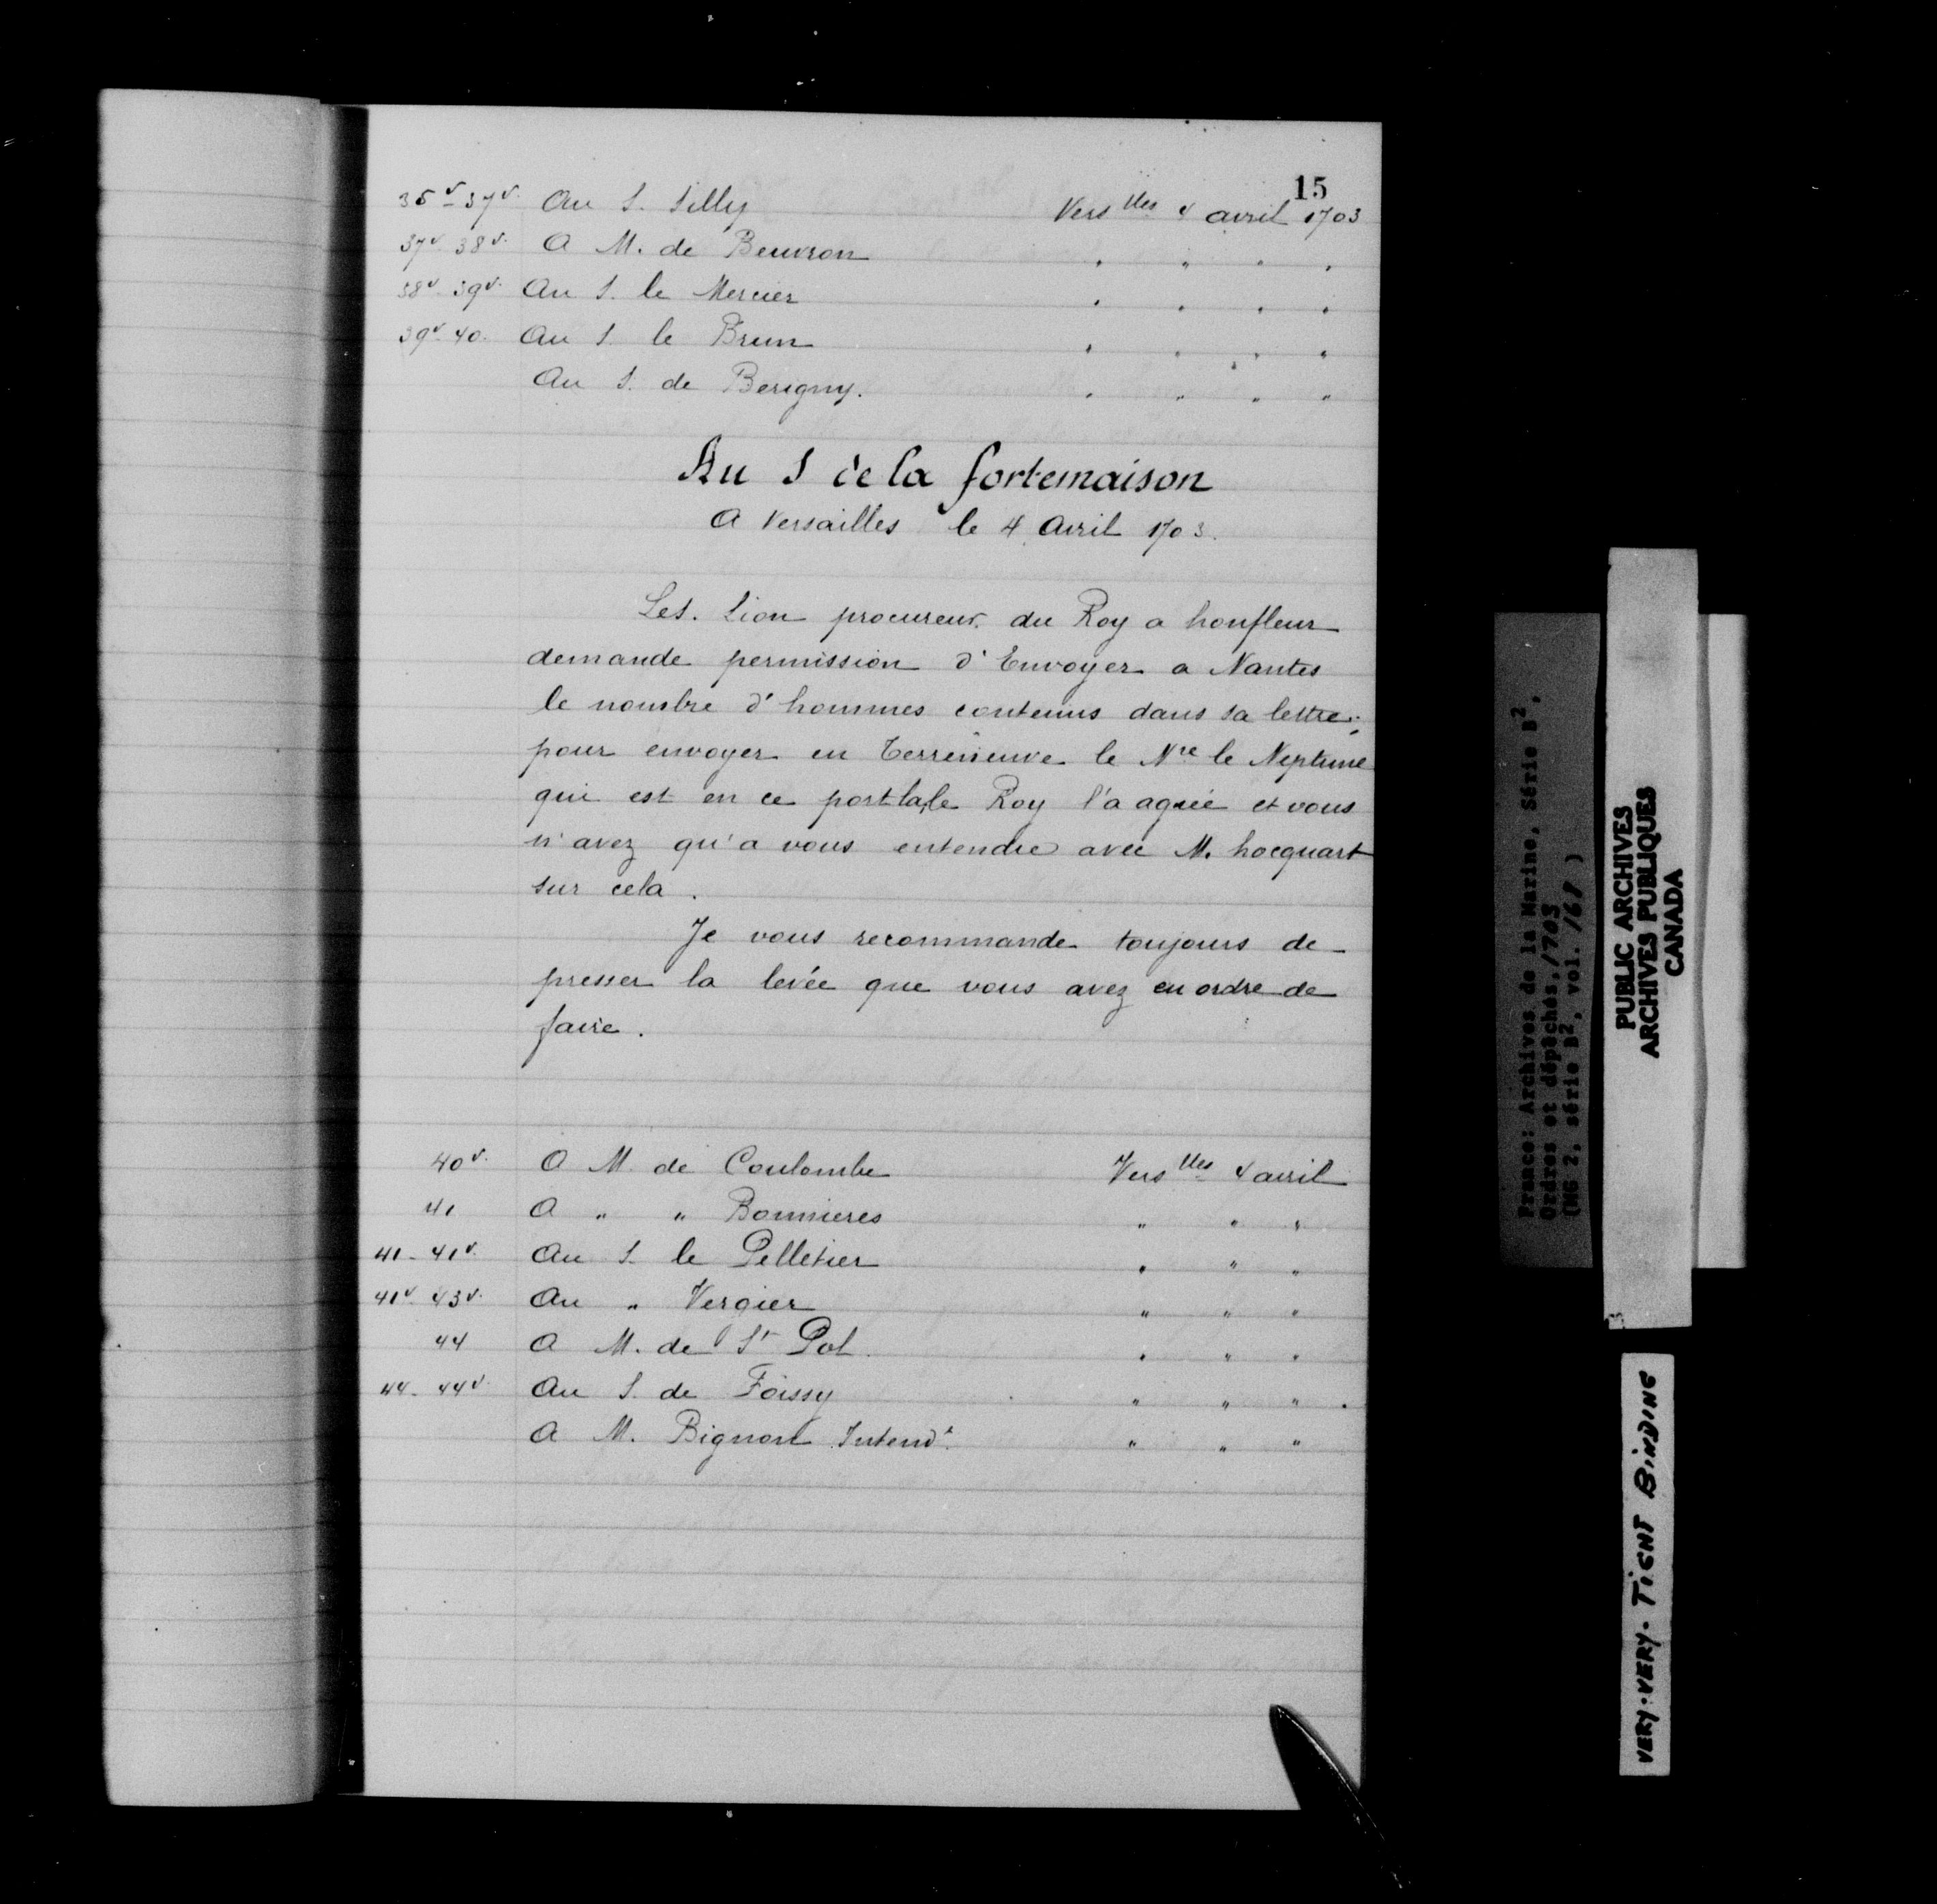 15
36v-37v. Au S. Silly Vers lles 4 avril 1703
37v. 38v. A M. de Beuvron " " " "
38v. 39v. Au S. le Mercier " " " "
39v. 40. Au S. le Brun " " " "
Au S. de Berigny. " " " "
Au S de la fortemaison
A Versailles le 4 Avril 1703.
Le S. Lion procureur du Roy a honfleur
demande permission d'Envoyer a Nantes
le nombre d'hommes contenus dans sa lettre;
pour envoyer en Terreneuve le Nre le Neptune
qui est en ce port la, le Roy l'a agréé et vous
n'avez qu'a vous entendre avec M. hocquart
sur cela.
Je vous recommande toujours de
presser la levée que vous avez eu ordre de
faire.
40v. A M. de Coulombe Vers lles 4 avril
41 A " " Bonnieres " " "
41-41v. Au S. le Pelletier " " "
41v. 43v. Au " Vergier " " "
44 A M. de St Pol. " " "
44-44v. Au S. de Foissy " " "
A M. Bignon Intendt. " " "
France: Archives de la Marine, Série B2,
Ordres et dépêches, 1703
(MG 2, série B2, vol. 168)
PUBLIC ARCHIVES
ARCHIVES PUBLIQUES
CANADA
3
VERY-VERY-TIGHT BINDING